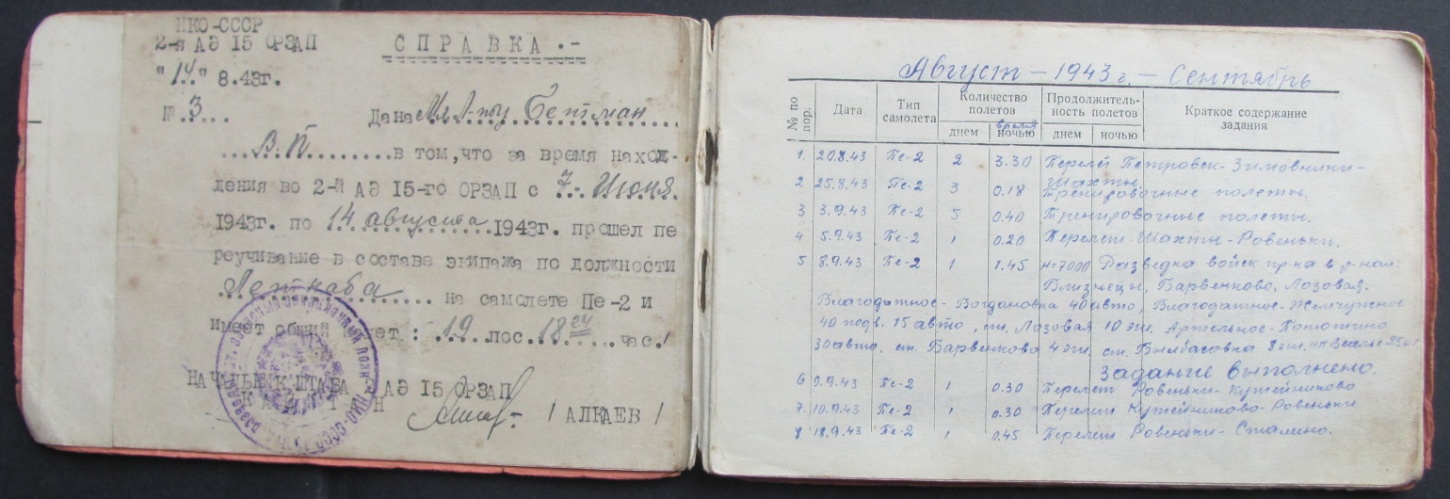 НКО-СССР
2-я АЭ 15 ОРЗАП
"14" 8.43г.
№ 3
СПРАВКА.-
Дана Мл. Л-ту Бетман
В.П в том, что за время нахож-
дения во 2-й АЭ 15-го ОРЗАП с 7 Июня
1943г. по 14 августа 1943г. прошел пе
реучивание в состава экипажа по должности
Летнаба на самолете Пе-2 и
имеет общий налет: 19 пос. 18 24 час.
НАЧАЛЬНИК ШТАБА 2 АЭ 15 ОРЗАП
КАПИТАН
/ АЛКАЕВ /
Август - 1943 г. - Сентябрь
№ по пор.
Дата
Тип самолета
Количество полетов
днем
время
ночью
Продолжитель-
ность полетов
днем
ночью
Краткое содержание
задания
1. 20.8.43 Пе-2 2 3.30 Перелёт Петровск-Зимовники-
Шахты.
2 25.8.43 Пе-2 3 0.18 Тренировочные полеты.
3 3.9.43 Пе-2 5 0.40 Тренировочные полеты.
4 5.9.43 Пе-2 1 0.20 Перелет-Шахты-Ровеньки.
5 8.9.43 Пе-2 1 1.45 Н=7000 Разведка войск пр-ка в р-нах:
Близнецы, Барвенково, Лозовая.
Благодатное-Богдановка 40 авто, Благодатное-Жемчужное
40 подв. 15 авто, ст. Лозовая 10 эш. Артельное-
30 авто. ст. Барвенкова 4 эш. ст. Былбасовка 8 эш.
Задание выполнено.
6 9.9.43 Пе-2 1 0.30 Перелет Ровеньки-Кутейниково
7. 10.9.43 Пе-2 1 0.30 Перелет Кутейниково-Ровеньки
8 18.9.43 Пе-2 1 0.45 Перелет Ровеньки-Сталино.